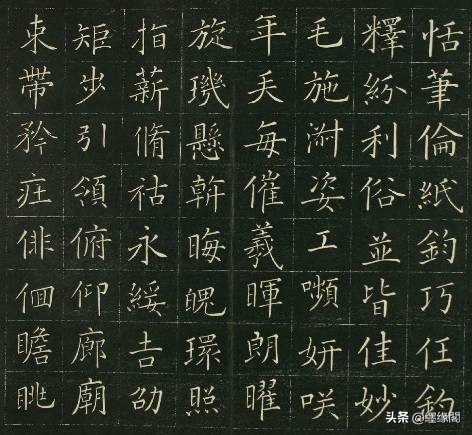 恬筆倫紙鈞巧任釣
釋紛利俗並皆佳妙
毛施淑姿工嚬妍咲
年矢每催羲暉朗曜
旋璣懸斡晦魄環照
指薪脩祜永綏吉劭
矩步引領俯仰廊廟
束帶矜庒俳佪瞻眺
头条 @纆缘閣